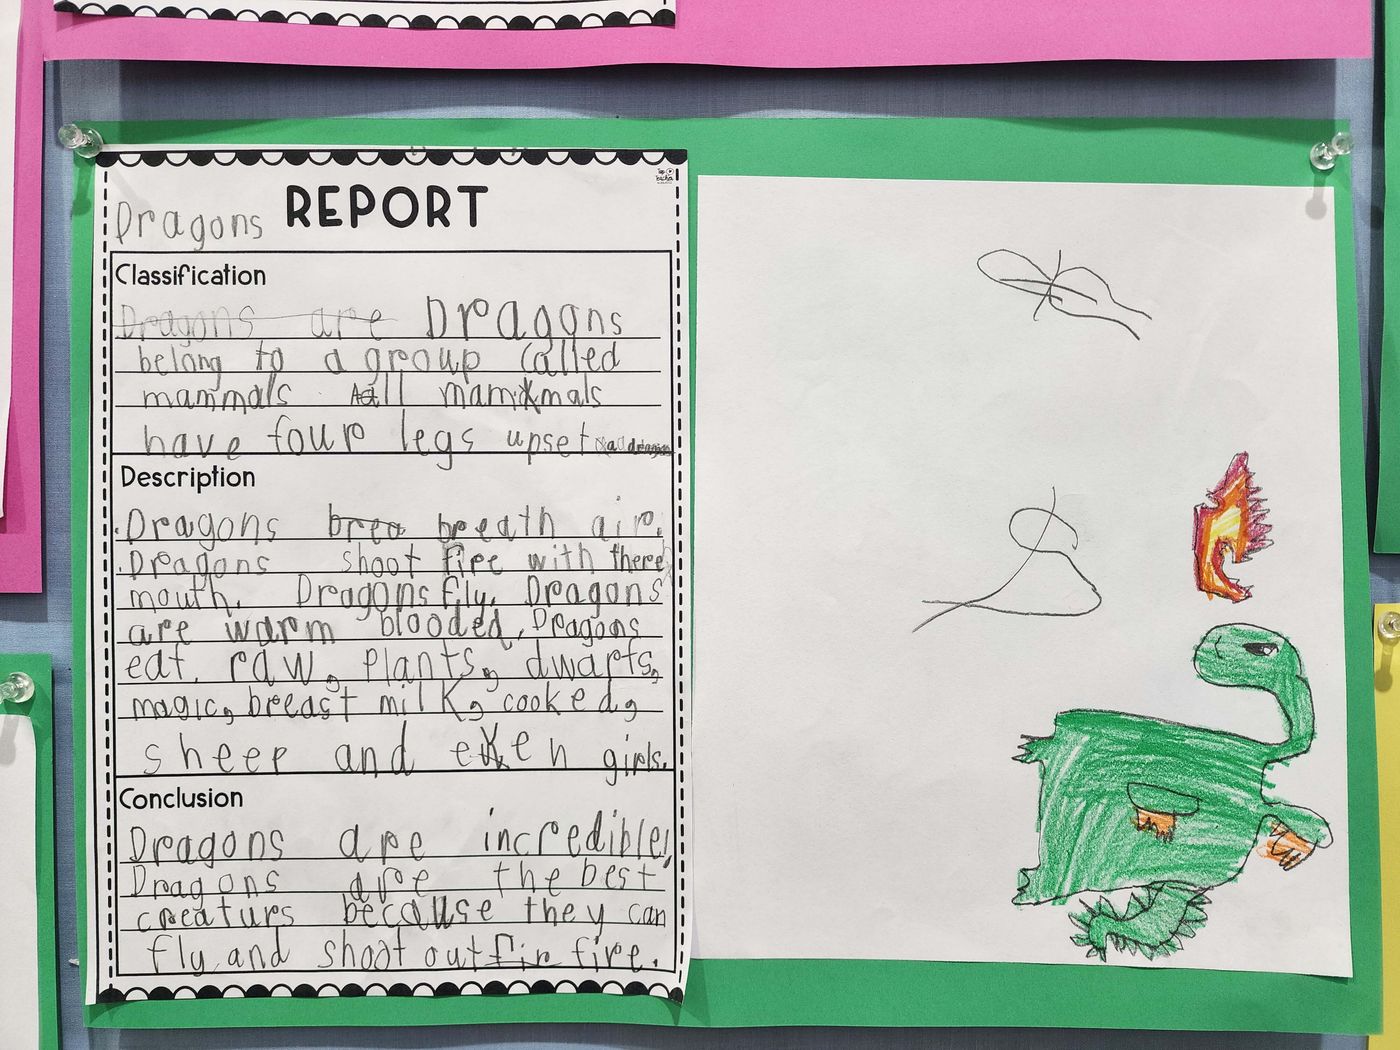 Dragons REPORT
Classification
Dragons are Dragons
belong to a group called
mammals All mammals
have four legs upset
Description
Dragons brea breath air.
Dragons shoot fire with there
mouth. Dragons fly. Dragons
are warm blooded, Dragons
eat, raw, plants, dwarfs,
magic, breast milk, cooked,
sheep and even girls.
Conclusion
Dragons are incredible!
Dragons are the best
creaturs because they can
fly and shoot out fir fire.